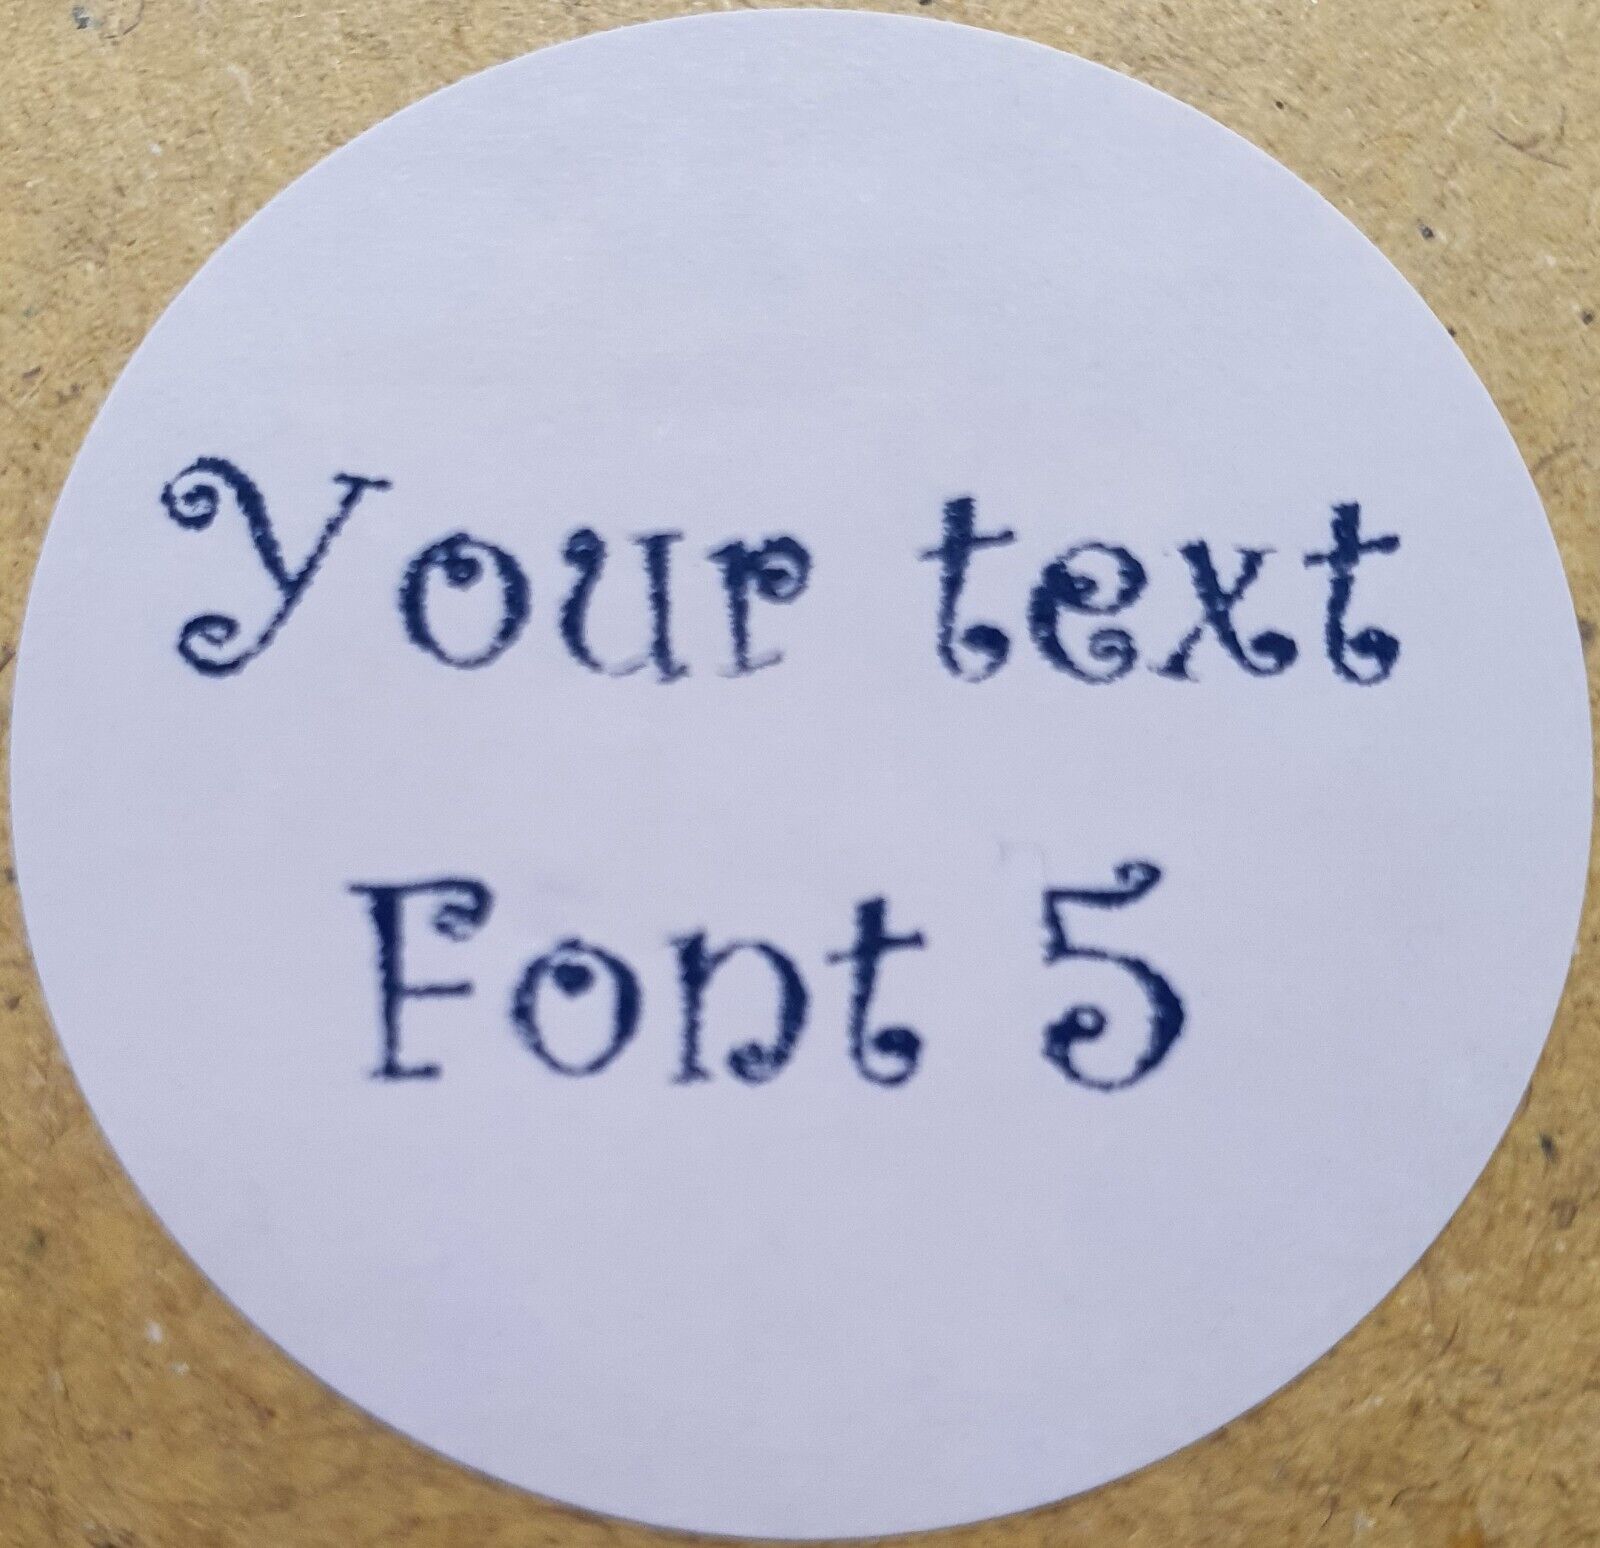 Your text
Font 5